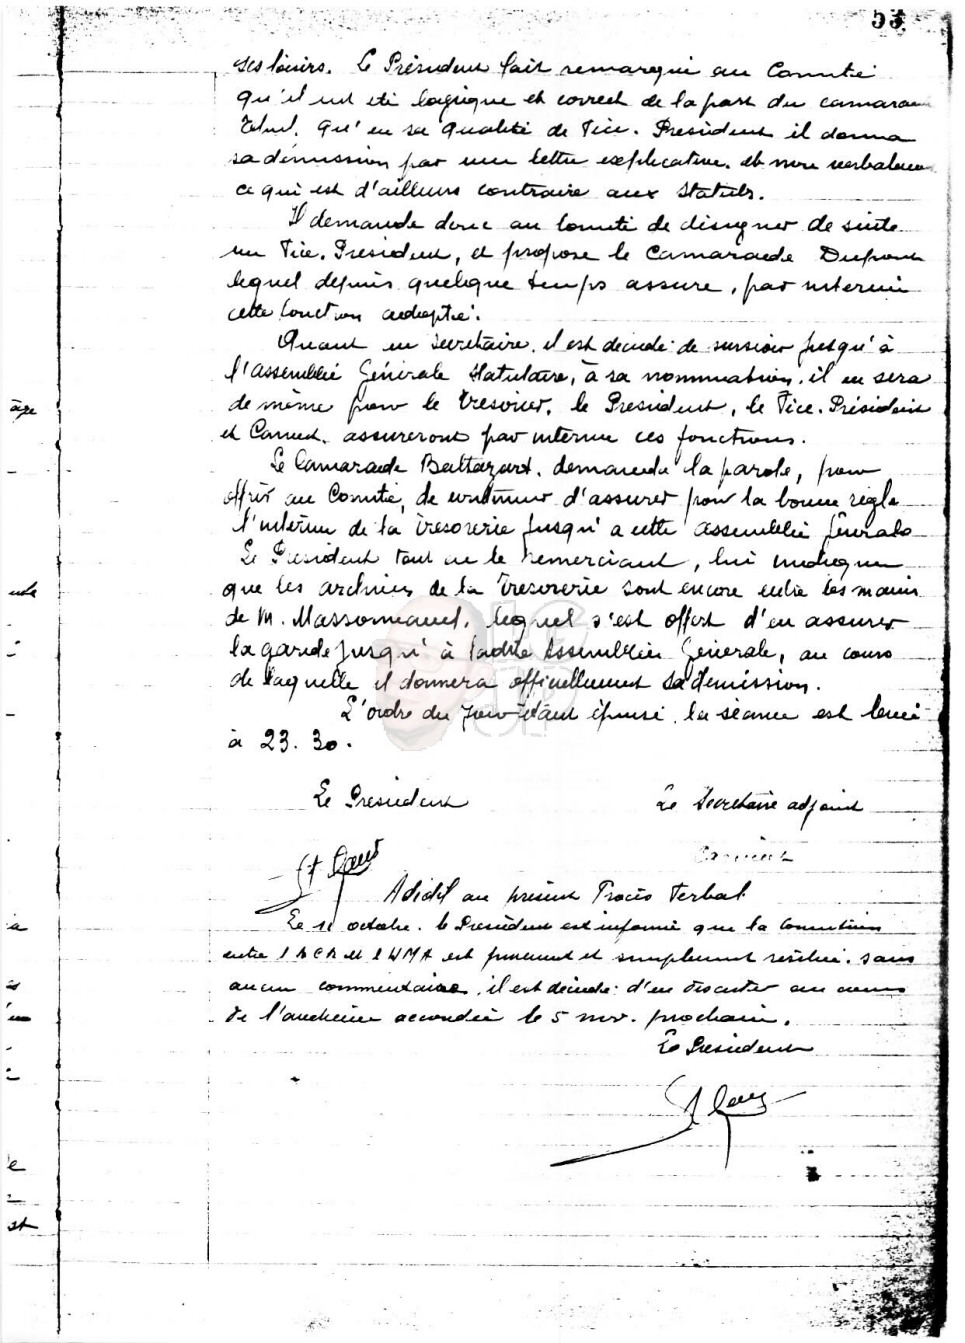 53
ses loisirs. Le Président fait remarqué au Comité
qu'il eut été logique et correct de la part du camarade
qu'en sa qualité de Vice. Président il donna
sa démission par une lettre explicative. et non verbalement
ce qui est d'ailleurs contraire aux Statuts.
Il demande donc au Comité de désigner de suite
un Vice. Président, et propose le Camarade Dupont
lequel depuis quelque temps assure, par interim
cette fonction adopté.
Quant au Secrétaire. il est décidé de surseoir jusqu'à
l'Assemblée Générale Statutaire, à sa nomination. il en sera
de même pour le Trésorier. le Président, le Vice. Président
et assureront par interim ces fonctions.
Le Camarade Baltazart. demande la parole, pour
offrir au Comité, de continuer d'assurer pour la bonne règle
l'interim de la trésorerie jusqu'a cette assemblée générale
Le Président tout en le remerciant, lui indique
que les archives de la Trésorerie sont encore entre les mains
de M. lequel s'est offert d'en assurer
la garde jusqu'à ladite Assemblée Générale, au cours
de laquelle il donnera officiellement sa démission.
L'ordre du Jour étant épuisé la séance est levée
à 23. 30.
Le President
Le Secrétaire adjoint
Additif au présent Procès Verbal
Le 11 octobre. le Président est informé que la Convention
entre l et l est purement et simplement résiliée. sans
aucun commentaire, il est décidé: d'en discuter au cours
de l'audience accordée le 5 nov. prochain.
Le Président